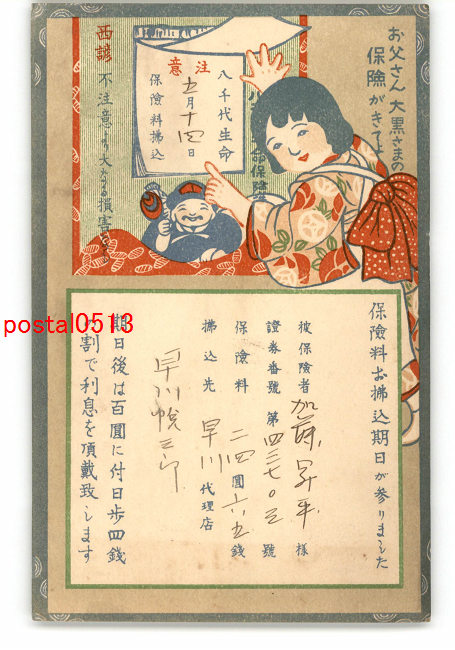 お父さん大黒さまの
保險がきてよ
八千代生命
注意
五月十四日
保險料拂込
西諺
不注意より大なる損害
保險料お拂込期日が参りました
被保險者 加藤昇平 様
證券番號 第四三七〇三號
保險料 二四圓六五錢
拂込先 早川代理店
早川悦三郎
期日後は百圓に付日歩四錢
割で利息を頂戴致します
postal0513